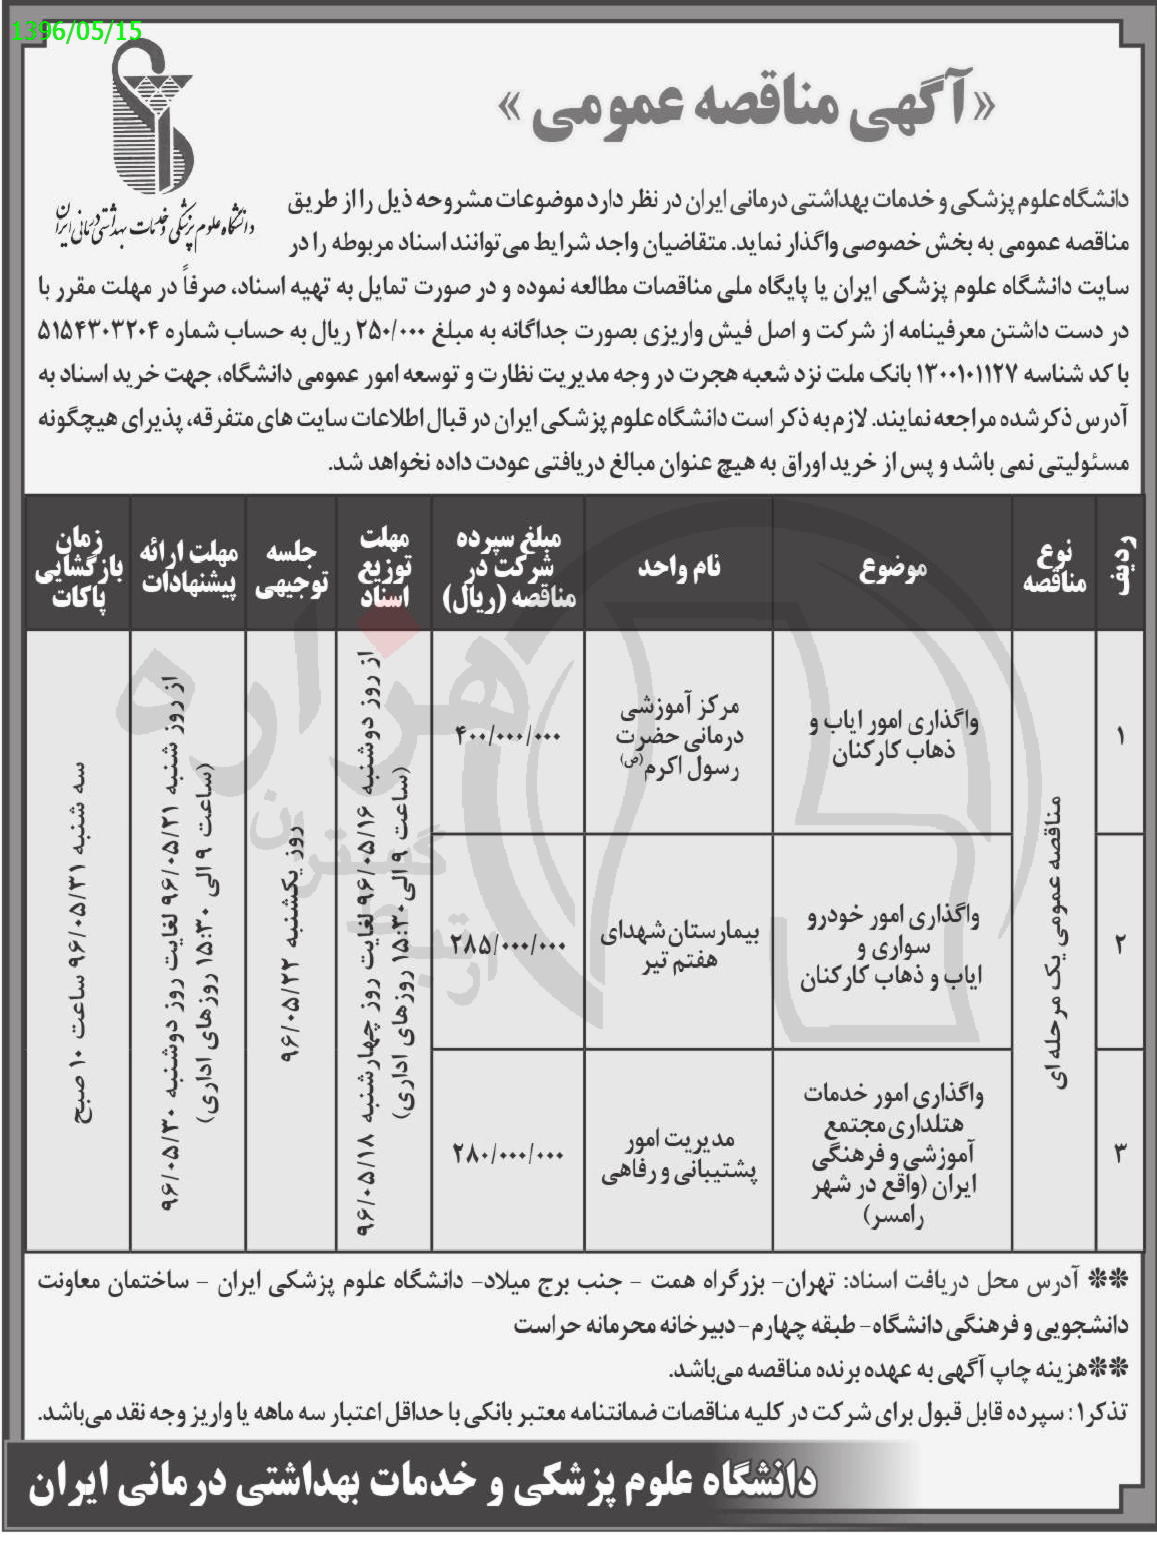 1396/05/15
«آگهی مناقصه عمومی»
دانشگاه علوم پزشکی و خدمات بهداشتی درمانی ایران
دانشگاه علوم پزشکی و خدمات بهداشتی درمانی ایران در نظر دارد موضوعات مشروحه ذیل را از طریق
مناقصه عمومی به بخش خصوصی واگذار نماید. متقاضیان واجد شرایط می‌توانند اسناد مربوطه را در
سایت دانشگاه علوم پزشکی ایران یا پایگاه ملی مناقصات مطالعه نموده و در صورت تمایل به تهیه اسناد، صرفاً در مهلت مقرر با
در دست داشتن معرفینامه از شرکت و اصل فیش واریزی بصورت جداگانه به مبلغ ۲۵۰/۰۰۰ ریال به حساب شماره ۵۱۵۴۳۰۳۲۰۴
با کد شناسه ۱۳۰۰۱۰۱۱۲۷ بانک ملت نزد شعبه هجرت در وجه مدیریت نظارت و توسعه امور عمومی دانشگاه، جهت خرید اسناد به
آدرس ذکر شده مراجعه نمایند. لازم به ذکر است دانشگاه علوم پزشکی ایران در قبال اطلاعات سایت های متفرقه، پذیرای هیچگونه
مسئولیتی نمی باشد و پس از خرید اوراق به هیچ عنوان مبالغ دریافتی عودت داده نخواهد شد.
ردیف
نوع
مناقصه
موضوع
نام واحد
مبلغ سپرده
شرکت در
مناقصه (ریال)
مهلت
توزیع
اسناد
جلسه
توجیهی
مهلت ارائه
پیشنهادات
زمان
بازگشایی
پاکات
۱
مناقصه عمومی یک مرحله ای
واگذاری امور ایاب و
ذهاب کارکنان
مرکز آموزشی
درمانی حضرت
رسول اکرم (ص)
۴۰۰/۰۰۰/۰۰۰
از روز دوشنبه ۹۶/۰۵/۱۶ لغایت روز چهارشنبه ۹۶/۰۵/۱۸
(ساعت ۹ الی ۱۵:۳۰ روزهای اداری)
روز یکشنبه ۹۶/۰۵/۲۲
از روز شنبه ۹۶/۰۵/۲۱ لغایت روز دوشنبه ۹۶/۰۵/۳۰
(ساعت ۹ الی ۱۵:۳۰ روزهای اداری)
سه شنبه ۹۶/۰۵/۳۱ ساعت ۱۰ صبح
۲
واگذاری امور خودرو
سواری و
ایاب و ذهاب کارکنان
بیمارستان شهدای
هفتم تیر
۲۸۵/۰۰۰/۰۰۰
۳
واگذاری امور خدمات
هتلداری مجتمع
آموزشی و فرهنگی
ایران (واقع در شهر
رامسر)
مدیریت امور
پشتیبانی و رفاهی
۲۸۰/۰۰۰/۰۰۰
هزاره
گستران
ارتباط
** آدرس محل دریافت اسناد: تهران- بزرگراه همت - جنب برج میلاد- دانشگاه علوم پزشکی ایران - ساختمان معاونت
دانشجویی و فرهنگی دانشگاه- طبقه چهارم- دبیرخانه محرمانه حراست
**هزینه چاپ آگهی به عهده برنده مناقصه می‌باشد.
تذکر۱: سپرده قابل قبول برای شرکت در کلیه مناقصات ضمانتنامه معتبر بانکی با حداقل اعتبار سه ماهه یا واریز وجه نقد می‌باشد.
دانشگاه علوم پزشکی و خدمات بهداشتی درمانی ایران